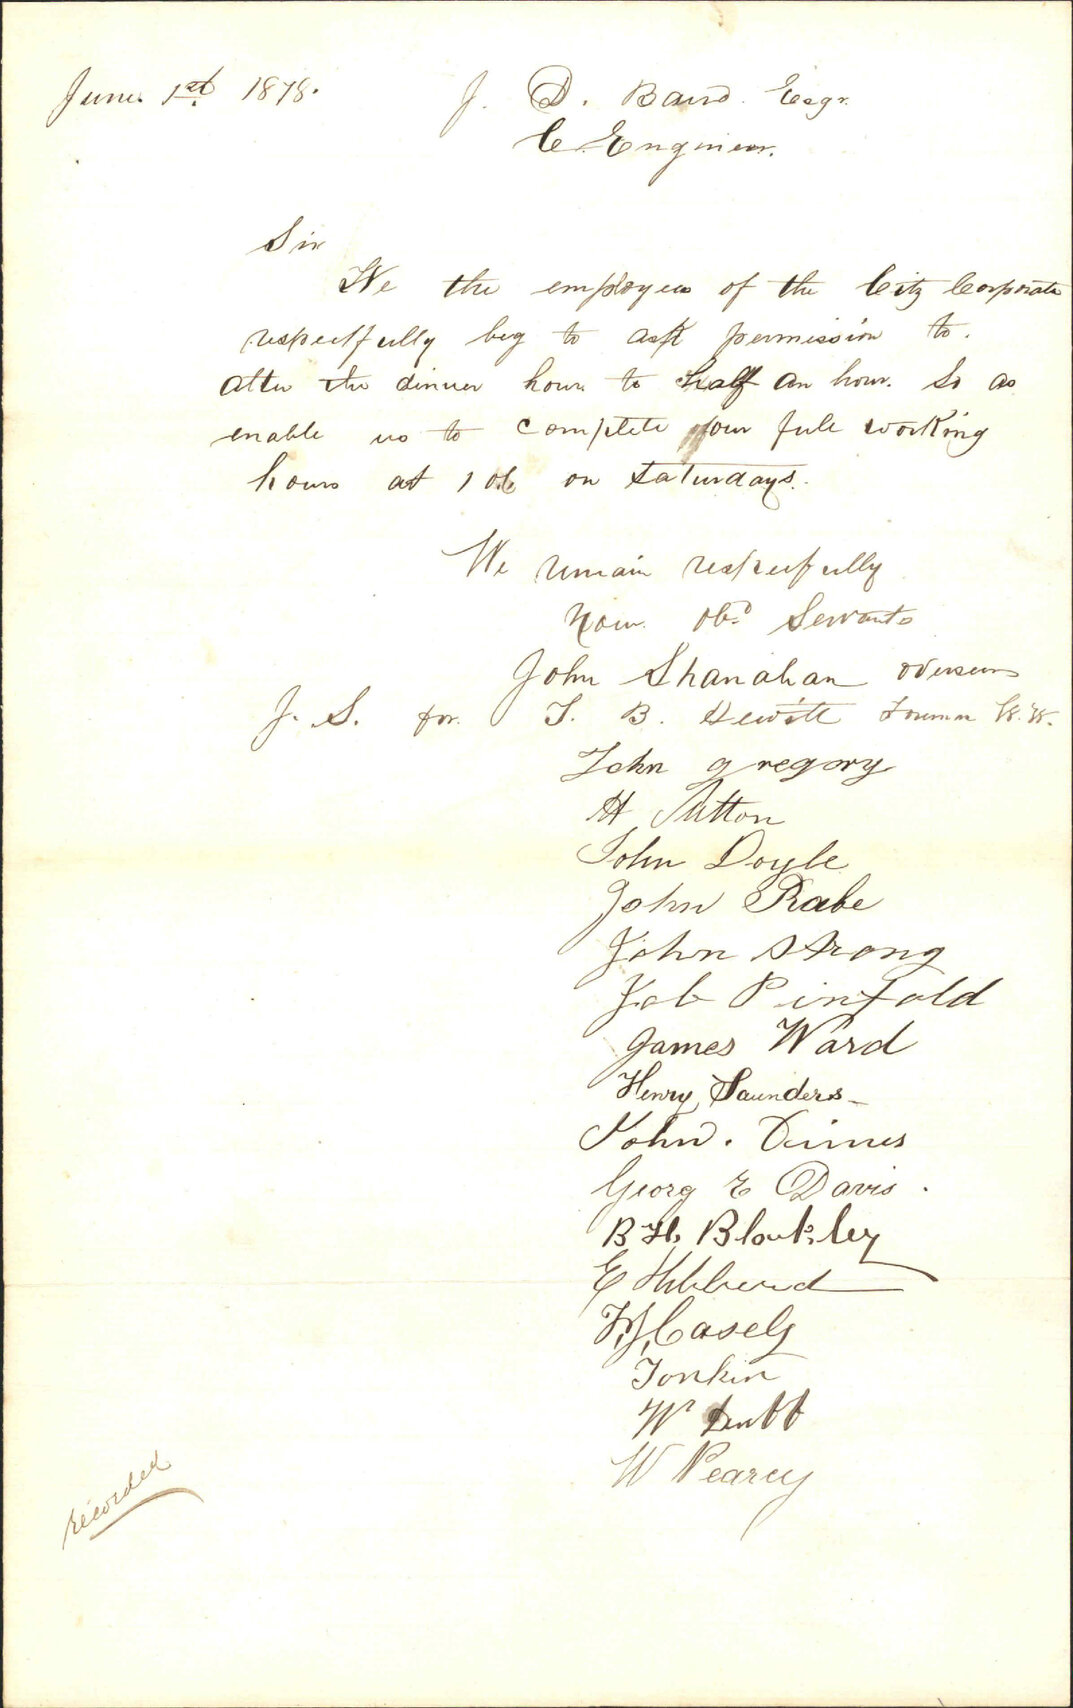 June 1st 1878.
J. D. Baird Esqr.
C. Engineer.
Sir
We the employees of the City Corporate
respectfully beg to ask permission to.
alter the dinner hour to half an hour. So as
enable us to complete our full working
hours at 1 o.c on Saturdays.
We remain respectfully
Your Obt. Servants
John Shanahan overseer
J. S. for. T. B. Hewitt Foreman W. W.
John gregory
H Sutton
John Doyle
John Rabe
John Strong
Job Pinfold
James Ward
Henry Saunders
John. Dimes
Georg E Davis.
B H. Blakley
E Hibberd
Casely
Tonkin
Wm
W Pearcy
recorded